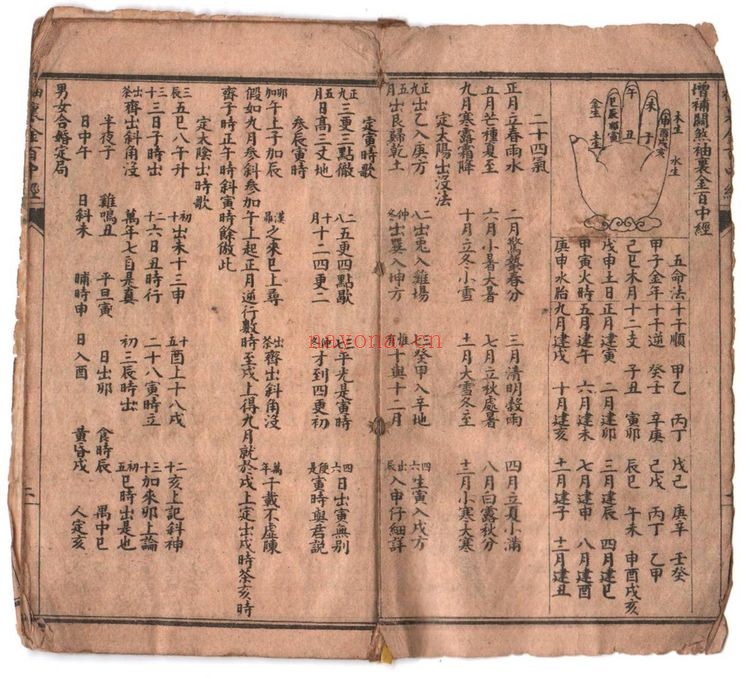 增補關煞袖裏金百中經
未生 水生
金生 土生
午 未 子 丑
巳 辰
五命法十干順 甲乙 丙丁 戊己 庚辛 壬癸
甲子金年十干逆 癸壬 辛庚 己戊 丙丁 乙甲
己巳木月十二支 子丑 寅卯 辰巳 午未 申酉戌亥
戊申土日正月建寅 二月建卯 三月建辰 四月建巳
甲寅火時五月建午 六月建未 七月建申 八月建酉
庚申水胎九月建戌 十月建亥 十一月建子 十二月建丑
二十四氣
正月立春雨水 二月驚蟄春分 三月清明穀雨 四月立夏小滿
五月芒種夏至 六月小暑大暑 七月立秋處暑 八月白露秋分
九月寒露霜降 十月立冬小雪 十一月大雪冬至 十二月小寒大寒
定太陽出沒法
正九出乙入庚方 二八出兎入雞場 癸甲入辛地 四六生寅入戌方
五月出艮歸乾土 仲冬出巽入坤方 惟十與十二月 出辰入申仔細詳
定寅時歌
正九三更二點徹 二八五更四點歇 七平光是寅時 四六日出寅無別
五月日高三丈地 十月十二四更二 才到四更初 便是寅時與君說
參辰寅時
卯加午上子加辰 漢昴之來巳上尋 出茶齊出斜角沒 萬年千載不虛陳
假如九月參斜參加午上起正月逆行數時至戌上得九月就於戌上定出戌時茶亥時
齊子時正午時斜寅時餘倣此
定太陰出時歌
三辰五巳八午升 初十出未十三申 十五酉上十八戌 二十亥上記斜神
二十三日子時出 二十六日丑時行 二十八寅時立 三十加來卯上論
出茶齊出斜角沒 萬年七自是真 初三辰時出 初五巳時出是也
半夜子 雞鳴丑 平旦寅 日出卯 食時辰 禺中巳
日中午 日斜未 晡時申 日入酉 黃昏戌 人定亥
男女合婚定局
袖裏金百中經
nayona.cn